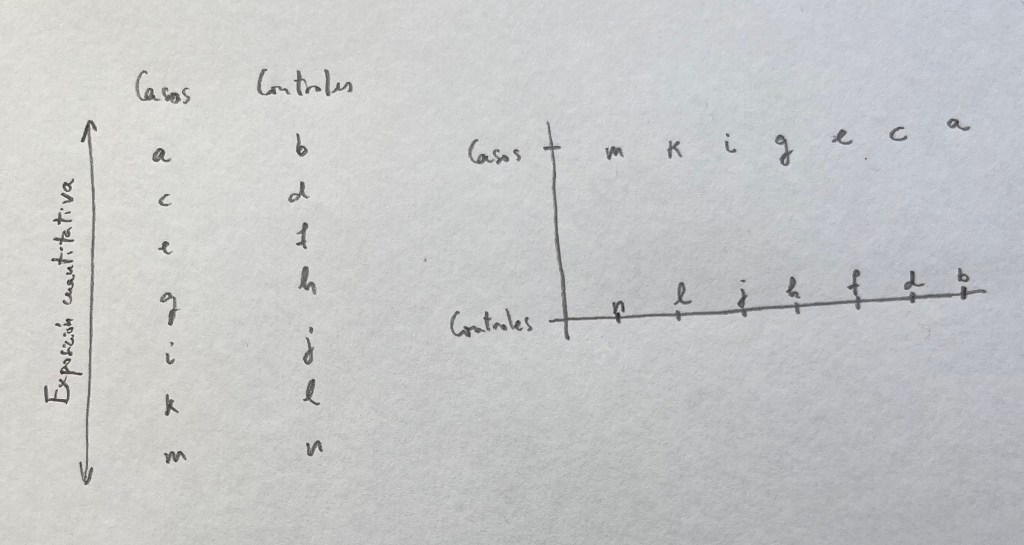 Casos Controles
a b
c d
e f
g h
i j
k l
m n
Exposición cuantitativa
Casos m k i g e c a
Controles n l j h f d b